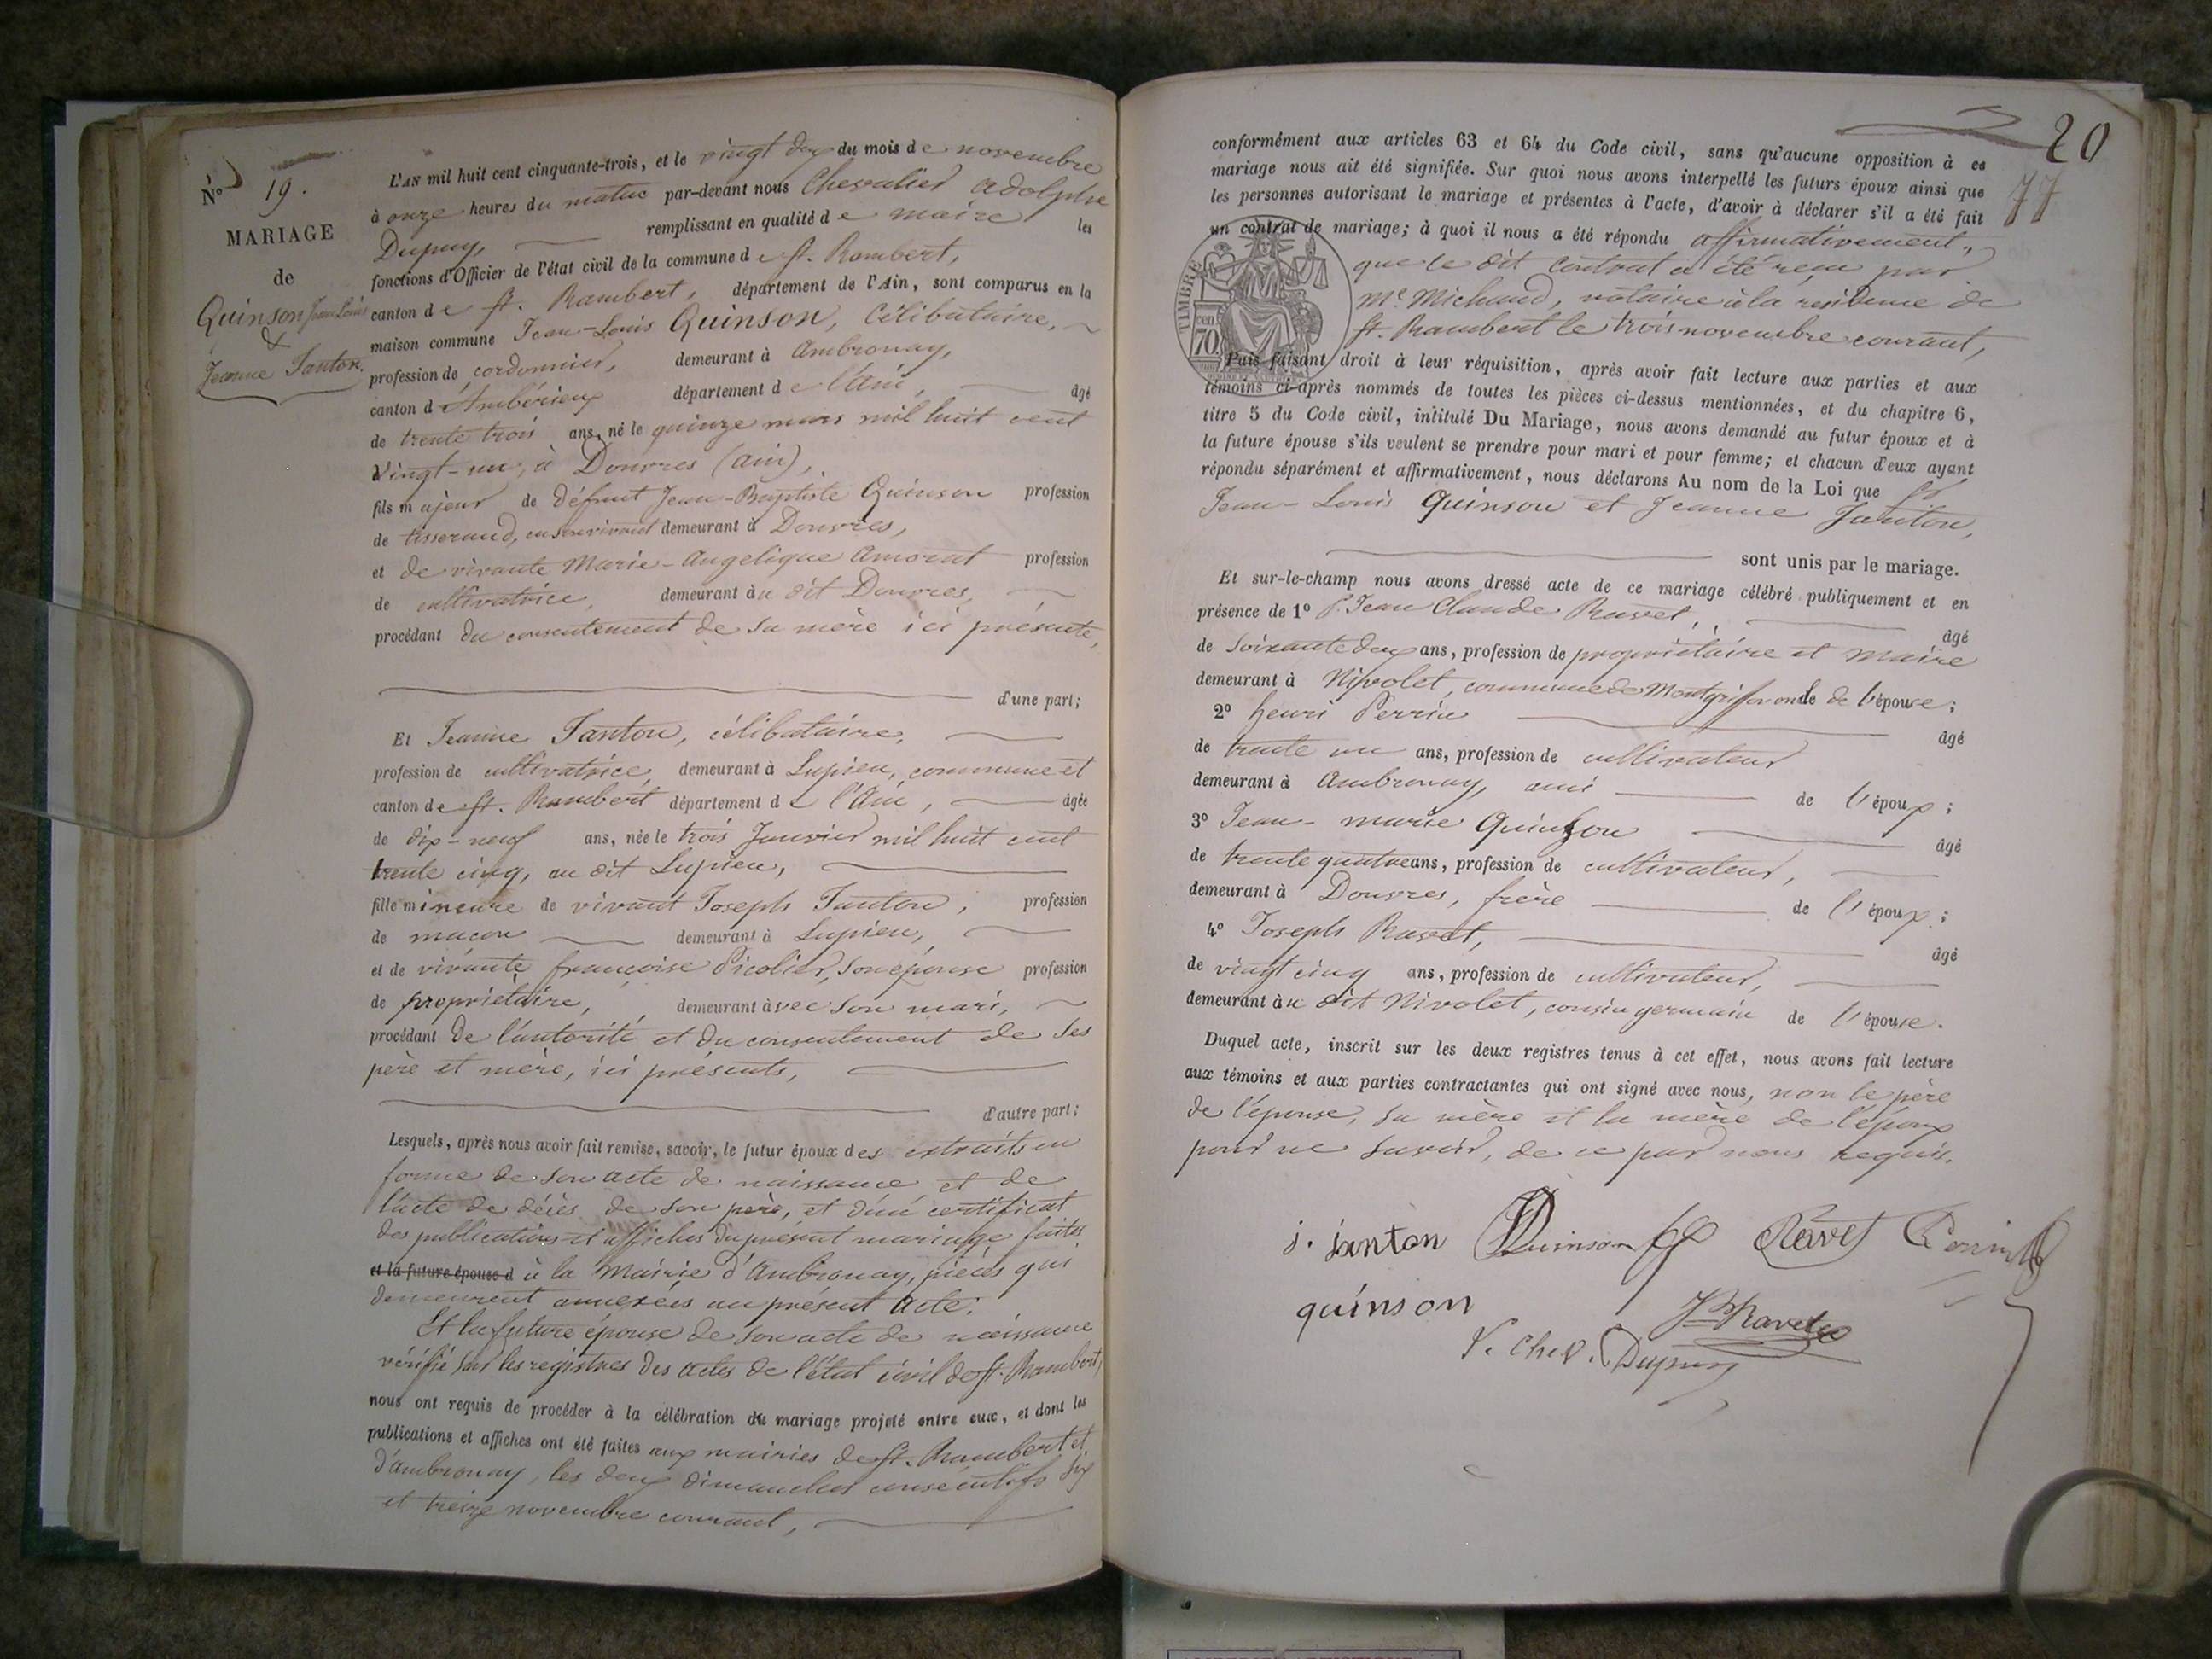 No 19.
MARIAGE
de
Quinson Jean Louis
&
Jeanne Janton.
L'AN mil huit cent cinquante-trois, et le vingt deux du mois de novembre
à onze heures du matin par-devant nous Chevalier Adolphe
Dupuy, remplissant en qualité de maire les
fonctions d'Officier de l'état civil de la commune de St. Rambert,
canton de St. Rambert, département de l'Ain, sont comparus en la
maison commune Jean-Louis Quinson, Célibataire,
profession de cordonnier, demeurant à Ambronay,
canton d'Ambérieux département de l'Ain, âgé
de trente trois ans, né le quinze mars mil huit cent
vingt-un, à Douvres (ain),
fils majeur de défunt Jean-Baptiste Quinson profession
de tisserand, en son vivant demeurant à Douvres,
et de vivante Marie-Angelique Amorat profession
de cultivatrice, demeurant au dit Douvres,
procédant du consentement de sa mère ici présente,
d'une part;
Et Jeanne Janton, célibataire,
profession de cultivatrice, demeurant à Lupieu, commune et
canton de St. Rambert département de l'Ain, âgée
de dix-neuf ans, née le trois Janvier mil huit cent
trente cinq, au dit Lupieu,
fille mineure de vivant Joseph Janton, profession
de maçon demeurant à Lupieu,
et de vivante françoise Picolier, son épouse profession
de propriétaire, demeurant avec son mari,
procédant de l'autorité et du consentement de ses
père et mère, ici présents,
d'autre part;
Lesquels, après nous avoir fait remise, savoir, le futur époux des extraits en
forme de son acte de naissance et de
l'acte de décès de son père, et d'un certificat
des publications et affiches du présent mariage faites
et la future épouse d à la Mairie d'Ambronay, pièces qui
demeurent annexées au présent acte.
Et la future épouse de son acte de naissance
vérifié sur les registres des actes de l'état civil de St. Rambert,
nous ont requis de procéder à la célébration du mariage projeté entre eux, et dont les
publications et affiches ont été faites aux mairies de St. Rambert et
d'Ambronay, les deux dimanches consécutifs six
et treize novembre courant,
20
77
conformément aux articles 63 et 64 du Code civil, sans qu'aucune opposition à ce
mariage nous ait été signifiée. Sur quoi nous avons interpellé les futurs époux ainsi que
les personnes autorisant le mariage et présentes à l'acte, d'avoir à déclarer s'il a été fait
un contrat de mariage; à quoi il nous a été répondu affirmativement,
que le dit contrat a été reçu par
Me. Michaud, notaire à la résidence de
St. Rambert le trois novembre courant,
TIMBRE
cen
70
Puis faisant droit à leur réquisition, après avoir fait lecture aux parties et aux
témoins ci-après nommés de toutes les pièces ci-dessus mentionnées, et du chapitre 6,
titre 5 du Code civil, intitulé Du Mariage, nous avons demandé au futur époux et à
la future épouse s'ils veulent se prendre pour mari et pour femme; et chacun d'eux ayant
répondu séparément et affirmativement, nous déclarons Au nom de la Loi que
Jean-Louis Quinson et Jeanne Janton,
sont unis par le mariage.
Et sur-le-champ nous avons dressé acte de ce mariage célébré publiquement et en
présence de 1o Jean Claude Ravet, âgé
de soixante deux ans, profession de propriétaire et maire
demeurant à Nivolet, commune de Montgriffon oncle de l'épouse;
2o henri Perrin âgé
de trente un ans, profession de cultivateur
demeurant à Ambronay, ami de l'époux;
3o Jean-marie Quinson âgé
de trente quatre ans, profession de cultivateur,
demeurant à Douvres, frère de l'époux;
4o Joseph Ravet, âgé
de vingt cinq ans, profession de cultivateur,
demeurant au dit Nivolet, cousin germain de l'épouse.
Duquel acte, inscrit sur les deux registres tenus à cet effet, nous avons fait lecture
aux témoins et aux parties contractantes qui ont signé avec nous, non le père
de l'épouse, sa mère et la mère de l'époux
pour ne savoir, de ce par nous requis.
j. janton Quinson Ravet Perrin
quinson Ravet
Chev. Dupuy